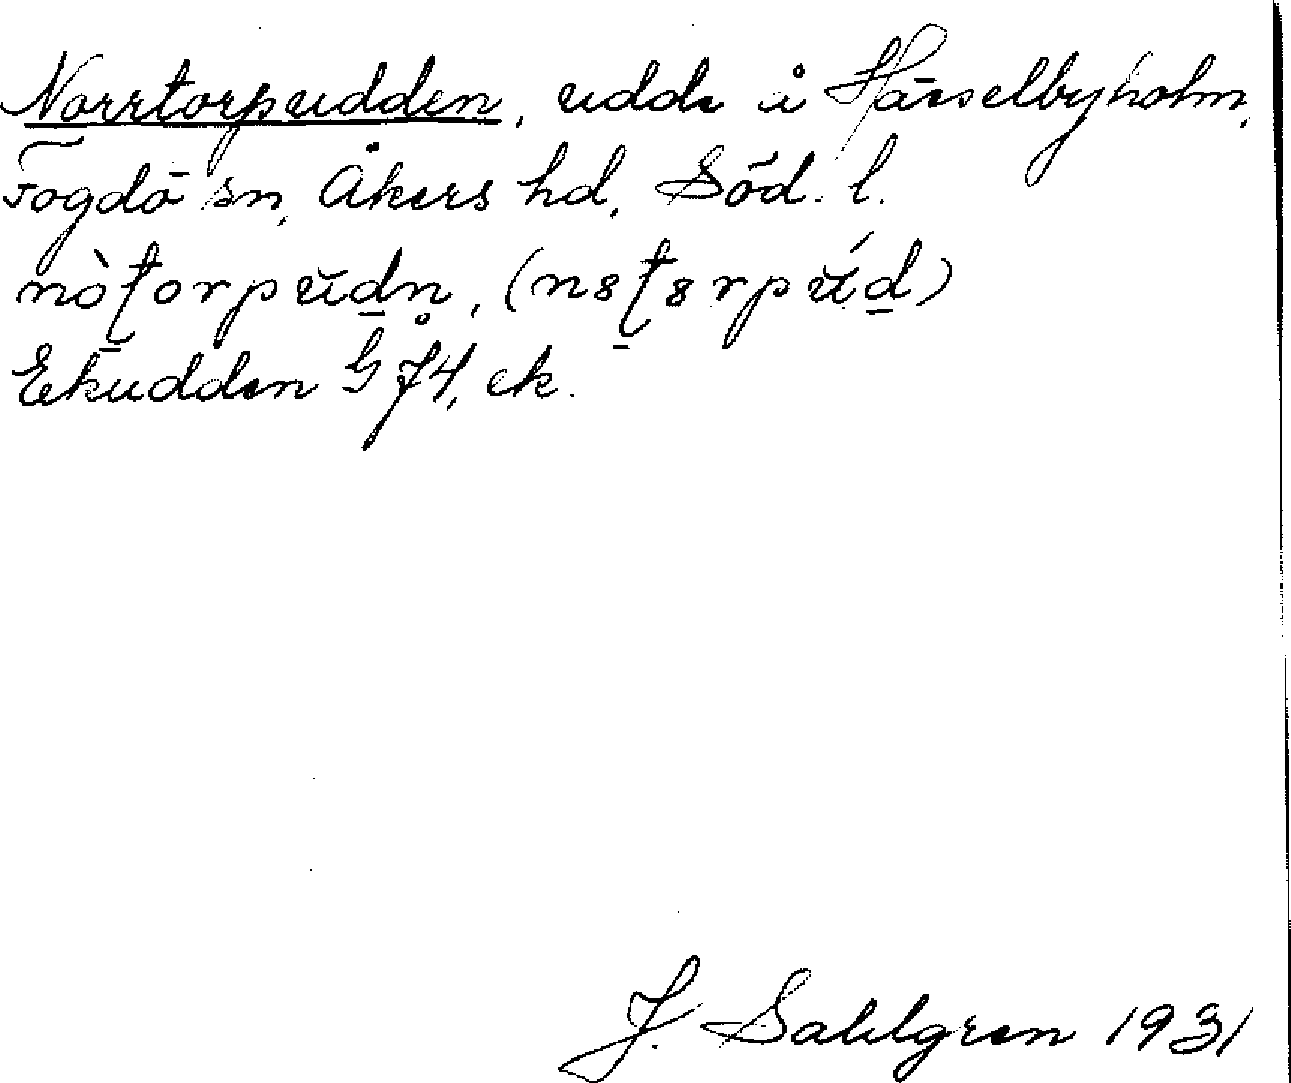 Norrtorpudden, udde å Härselbyholm,
Fogdö sn, Åkers hd, Söd. l.
nòtorpŭdn̥, (nstsrpŭ́d)
Ekudden G J4, ek.
J. Sahlgren 1931